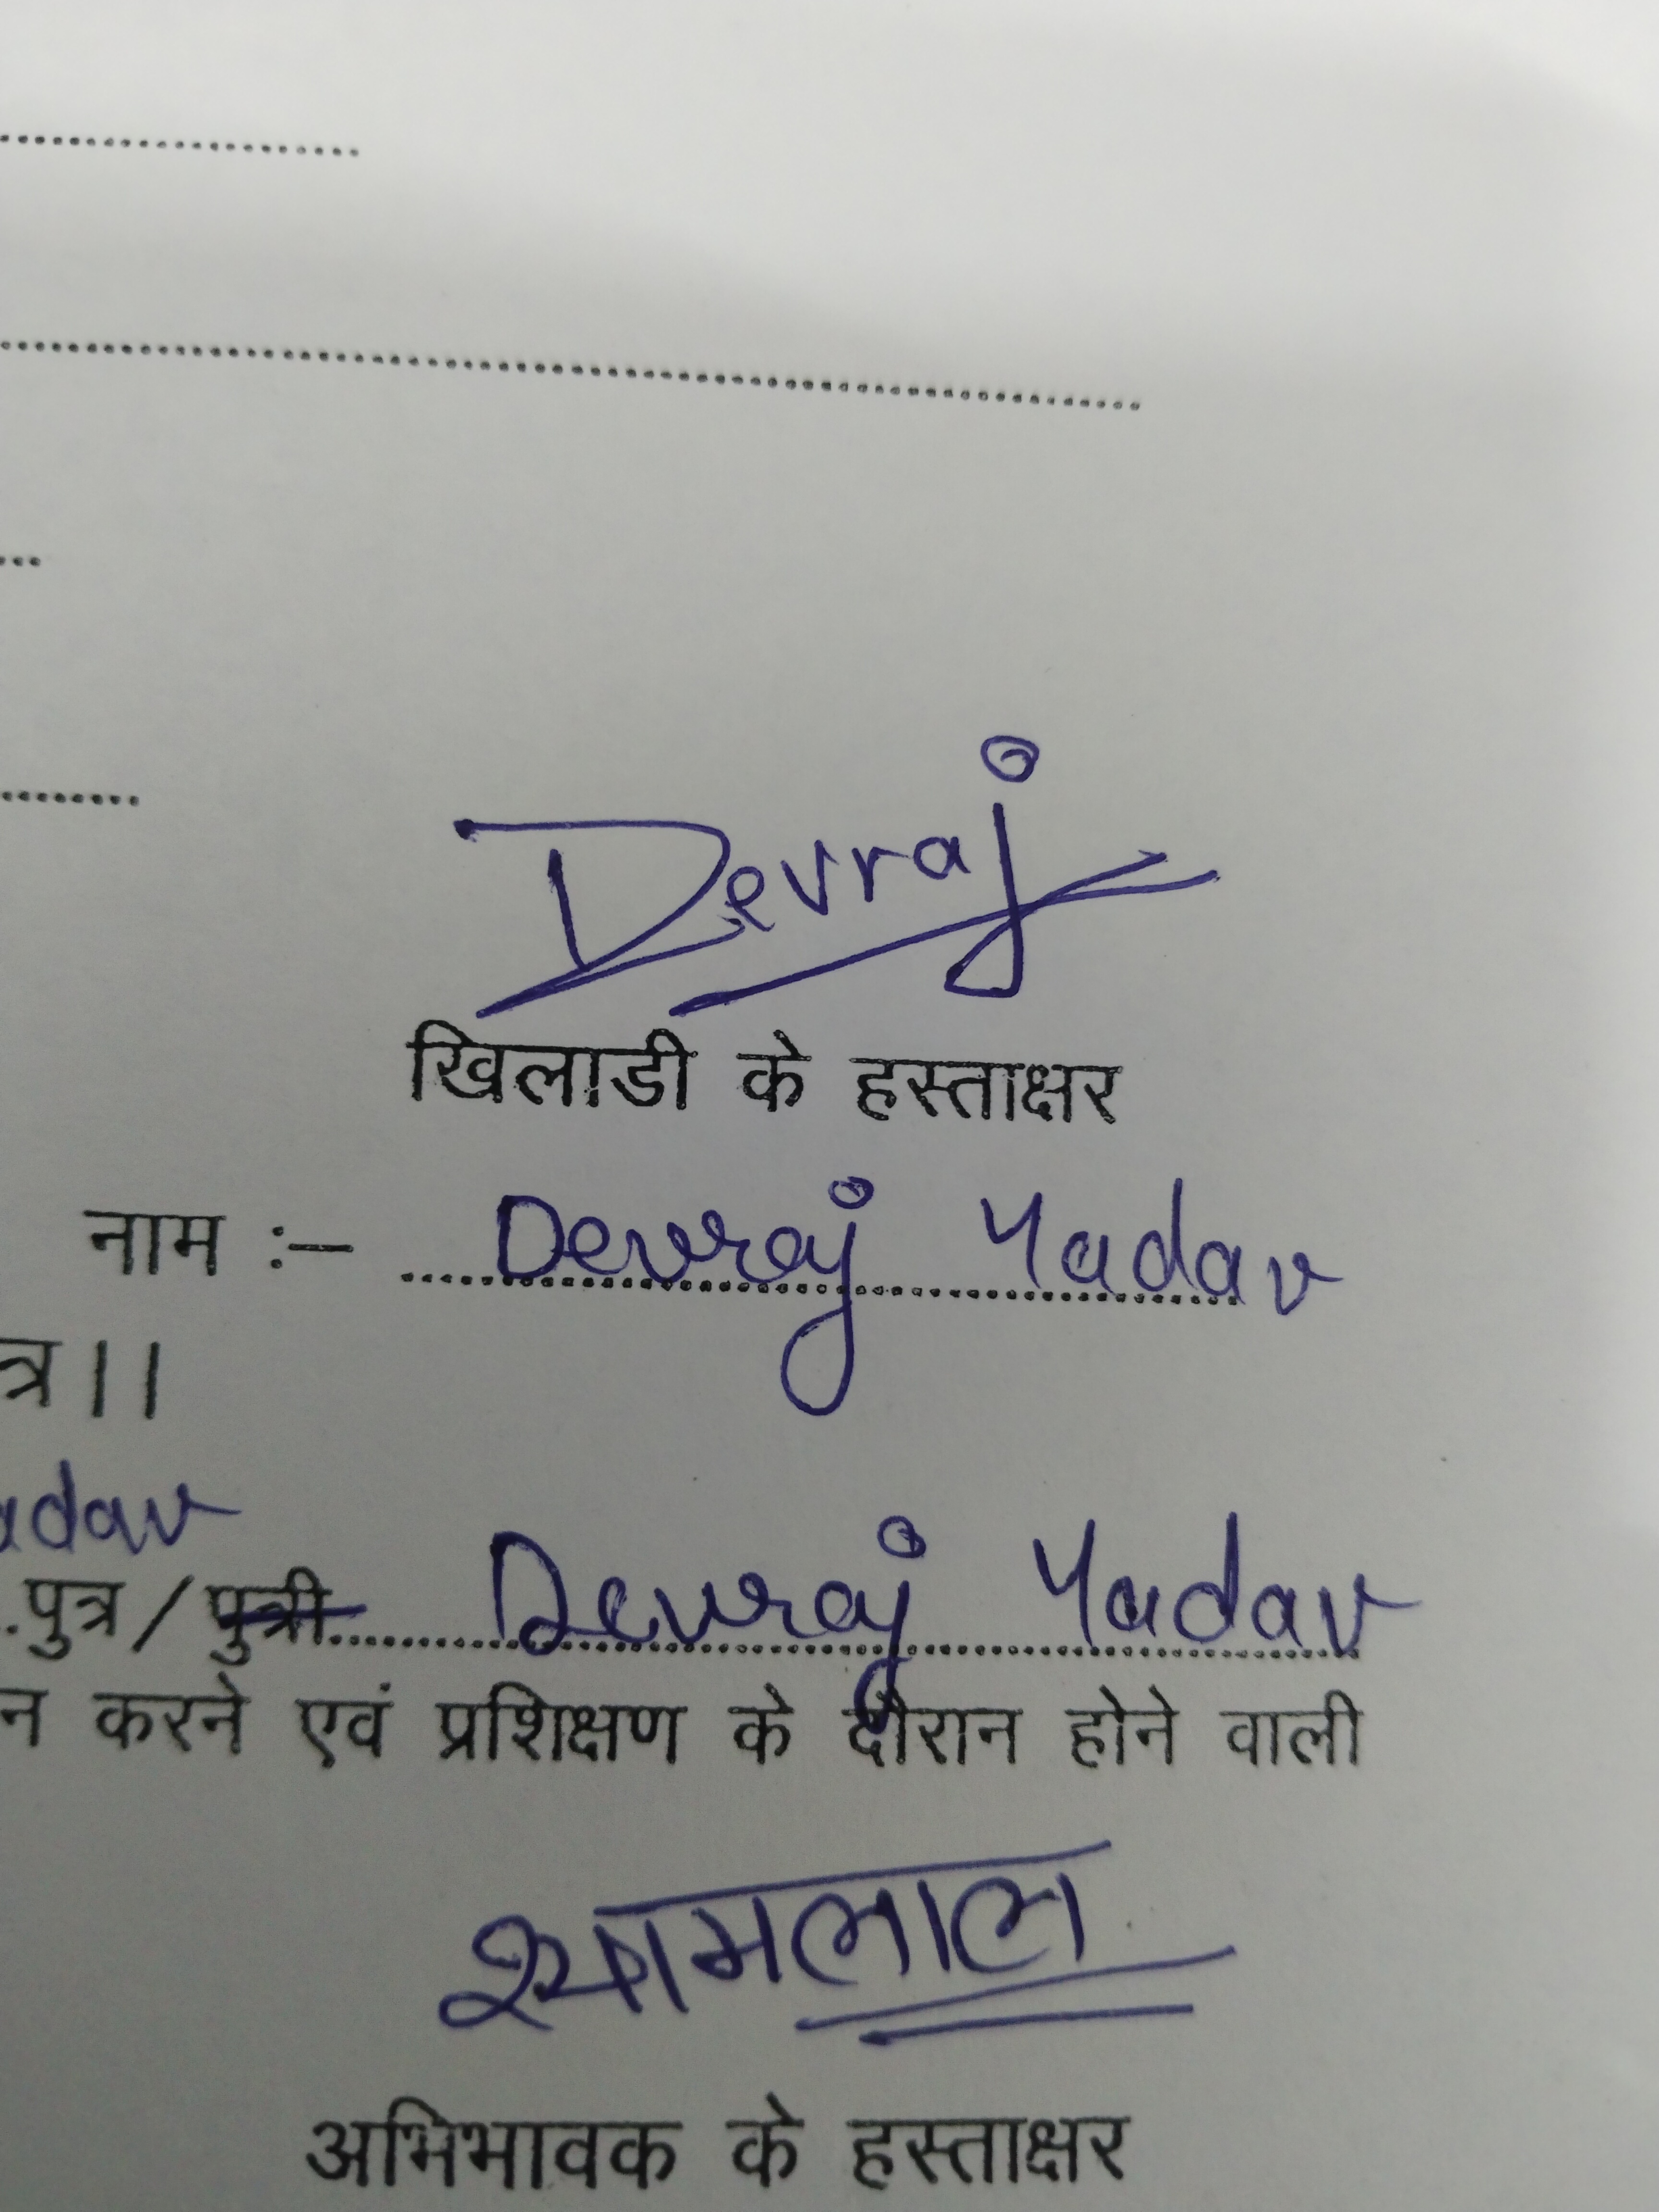 Devraj
खिलाडी के हस्ताक्षर
नाम :– Devraj Yadav
त्र।।
adav
पुत्र / पुत्री Devraj Yadav
न करने एवं प्रशिक्षण के दौरान होने वाली
श्यामलाल
अभिभावक के हस्ताक्षर